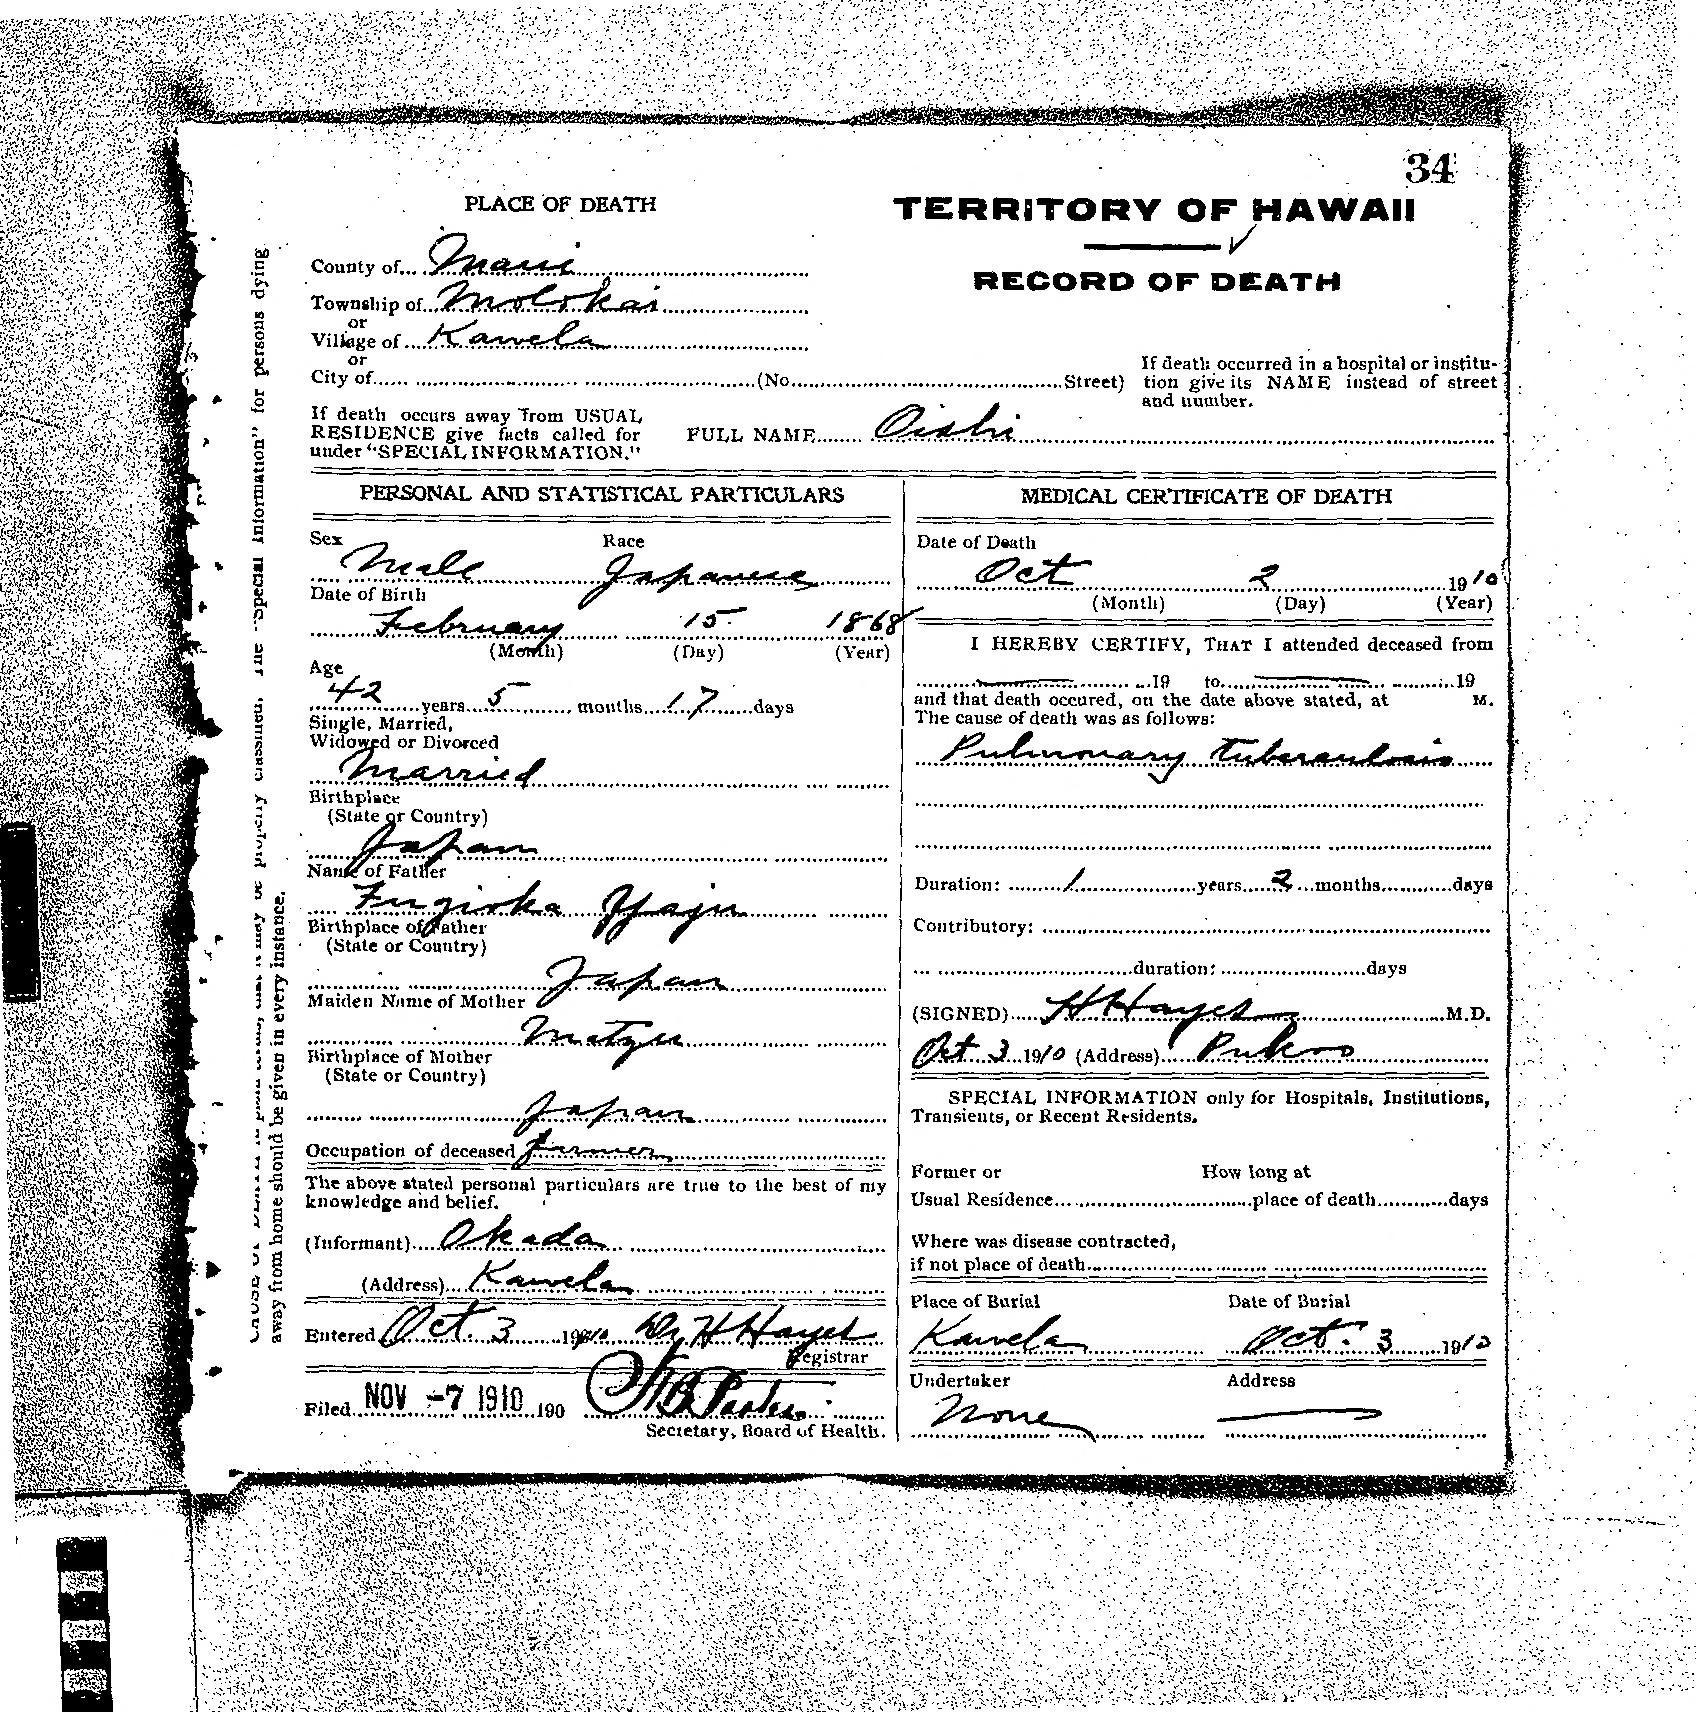 34
PLACE OF DEATH
TERRITORY OF HAWAII
RECORD OF DEATH
County of Maui
Township of Molokai
or
Village of Kawela
or
City of (No. Street)
If death occurred in a hospital or institu-
tion give its NAME instead of street
and number.
If death occurs away from USUAL
RESIDENCE give facts called for
under "SPECIAL INFORMATION."
FULL NAME Oishi
PERSONAL AND STATISTICAL PARTICULARS
Sex Race
Male Japanese
Date of Birth
February 15 1868
(Month) (Day) (Year)
Age
42 years 5 months 17 days
Single, Married,
Widowed or Divorced
Married
Birthplace
(State or Country)
Japan
Name of Father
Fugioka Yaju
Birthplace of Father
(State or Country)
Japan
Maiden Name of Mother
Matzu
Birthplace of Mother
(State or Country)
Japan
Occupation of deceased Farmer
The above stated personal particulars are true to the best of my
knowledge and belief.
(Informant) Okada
(Address) Kawela
Entered Oct. 3 1910 Dr H Hayes
Registrar
Filed NOV -7 1910 190
Secretary, Board of Health.
MEDICAL CERTIFICATE OF DEATH
Date of Death
Oct 2 1910
(Month) (Day) (Year)
I HEREBY CERTIFY, THAT I attended deceased from
19 to 19
and that death occured, on the date above stated, at M.
The cause of death was as follows:
Pulmonary tuberculosis
Duration: 1 years 2 months days
Contributory:
duration: days
(SIGNED) H Hayes M.D.
Oct 3 1910 (Address) Pukoo
SPECIAL INFORMATION only for Hospitals, Institutions,
Transients, or Recent Residents.
Former or How long at
Usual Residence place of death days
Where was disease contracted,
if not place of death
Place of Burial Date of Burial
Kawela Oct. 3 1910
Undertaker Address
None
may be properly classified. The "Special Information" for persons dying
away from home should be given in every instance.